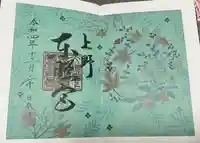 上野
東照宮
令和四年十二月二十日